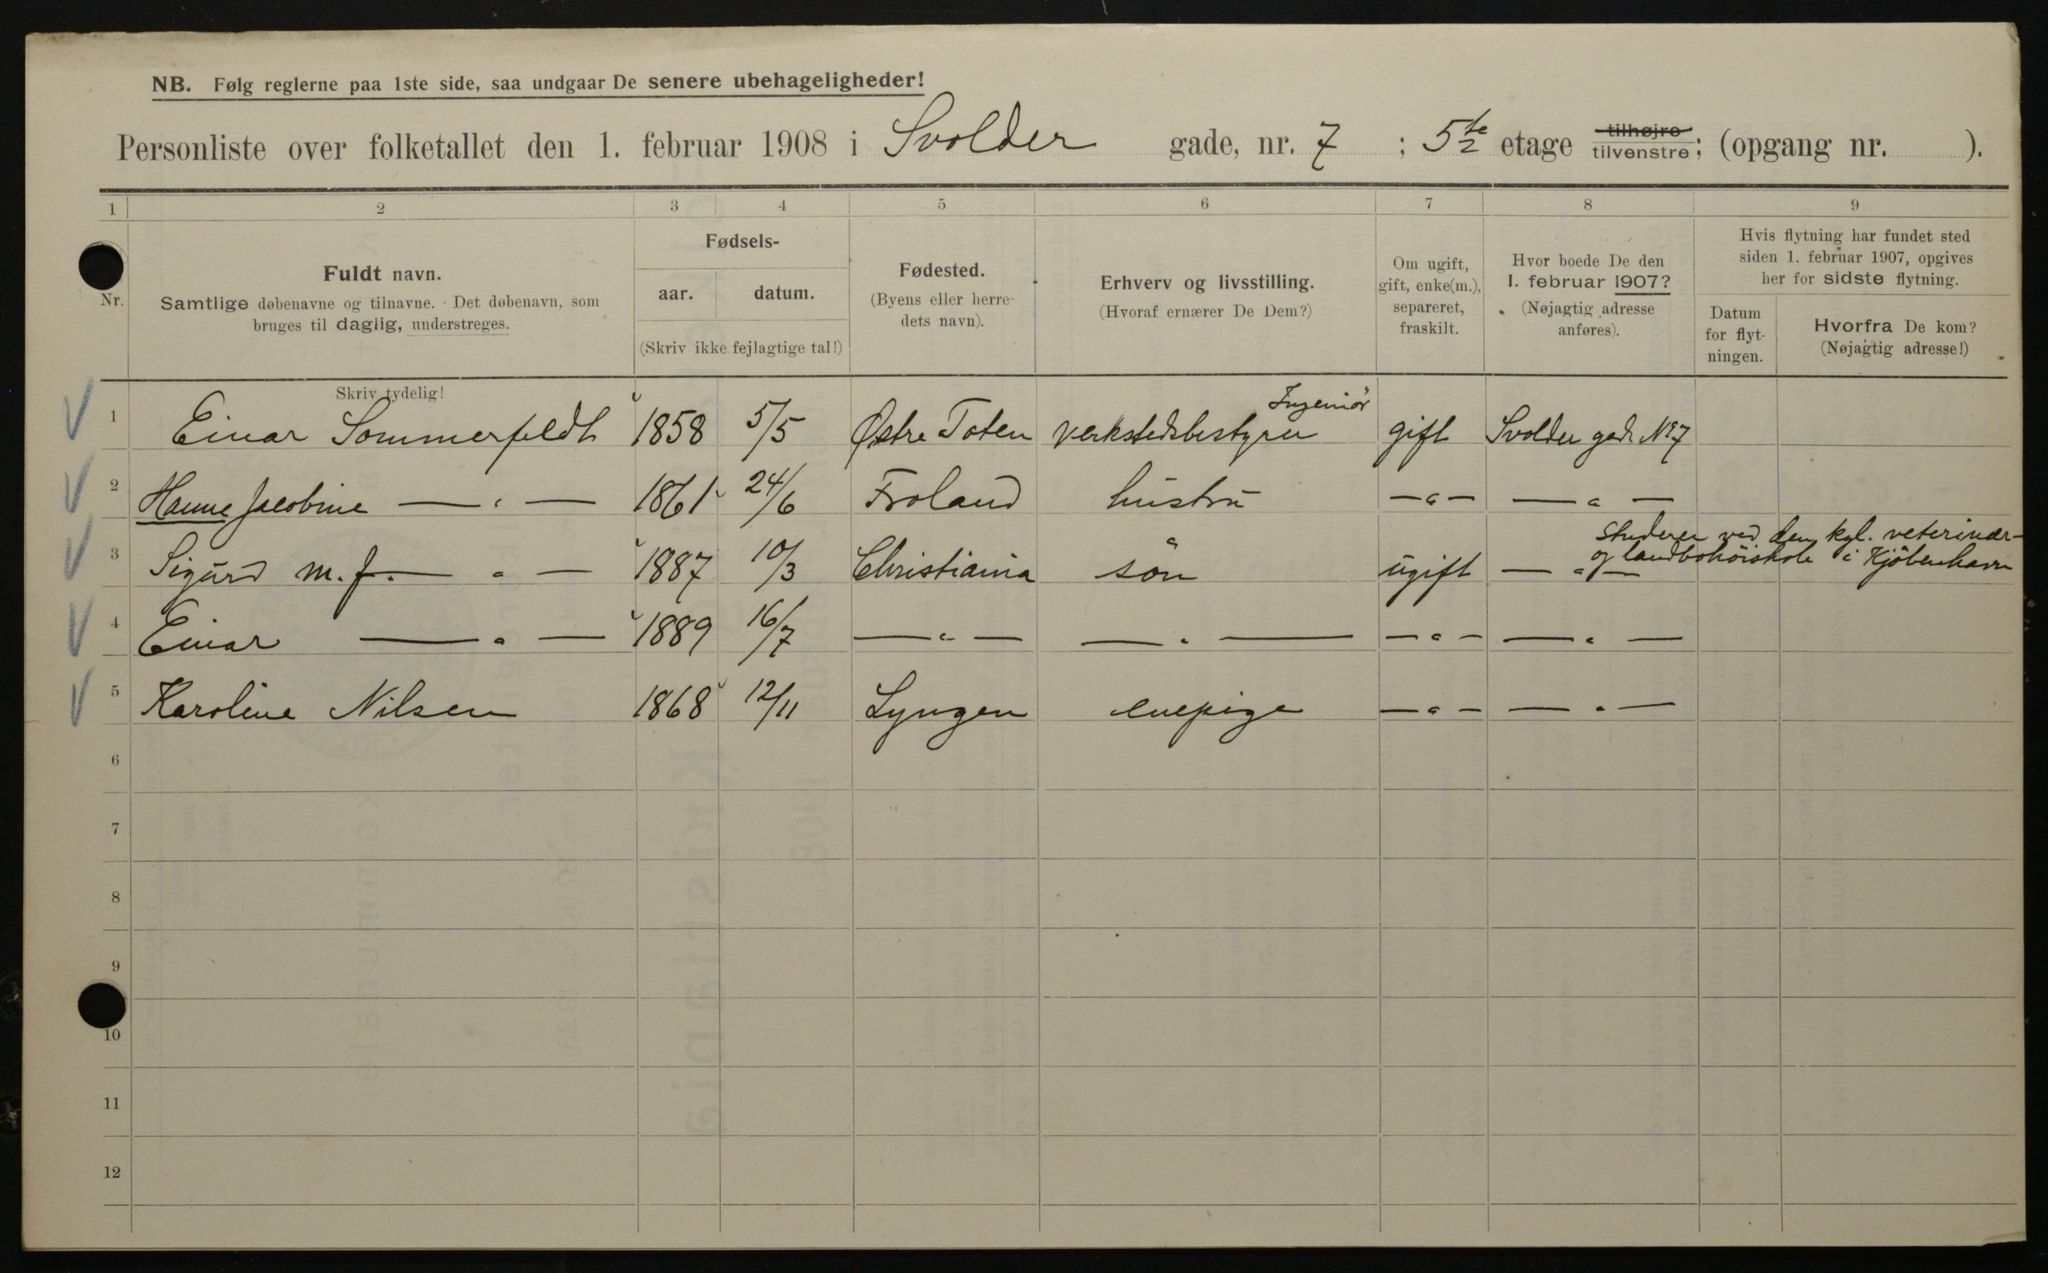 NB. Følg reglerne paa 1ste side, saa undgaar De senere ubehageligheder!
Personliste over folketallet den 1. februar 1908 i Svolder gade, nr. 7 ; 5te etage tilhøjre tilvenstre; (opgang nr. ).
1 2 3 4 5 6 7 8 9
Nr.
Fuldt navn.
Samtlige døbenavne og tilnavne. Det døbenavn, som
bruges til daglig, understreges.
Skriv tydelig!
Fødsels-
aar. datum.
(Skriv ikke fejlagtige tal!)
Fødested.
(Byens eller herre-
dets navn).
Erhverv og livsstilling.
(Hvoraf ernærer De Dem?)
Om ugift,
gift, enke(m.),
separeret,
fraskilt.
Hvor boede De den
1. februar 1907?
(Nøjagtig adresse
anføres).
Hvis flytning har fundet sted
siden 1. februar 1907, opgives
her for sidste flytning.
Datum
for flyt-
ningen.
Hvorfra De kom?
(Nøjagtig adresse!)
Ingeniör
1 Einar Sommerfeldt 1858 5/5 Østre Toten verkstedsbestyrer gift Svolder gade No 7
2 Hanne Jacobine — " — 1861 24/6 Froland hustru — " — — " —
studerer ved den kgl. veterinær-
og landbohöiskole i Kjöbenhavn
3 Sigurd M. J. — " — 1887 10/3 Christiania sön ugift — " —
4 Einar — " — 1889 16/7 — " — — " — — " — — " —
5 Karoline Nilsen 1868 12/11 Lyngen enepige — " — — " —
6
7
8
9
10
11
12